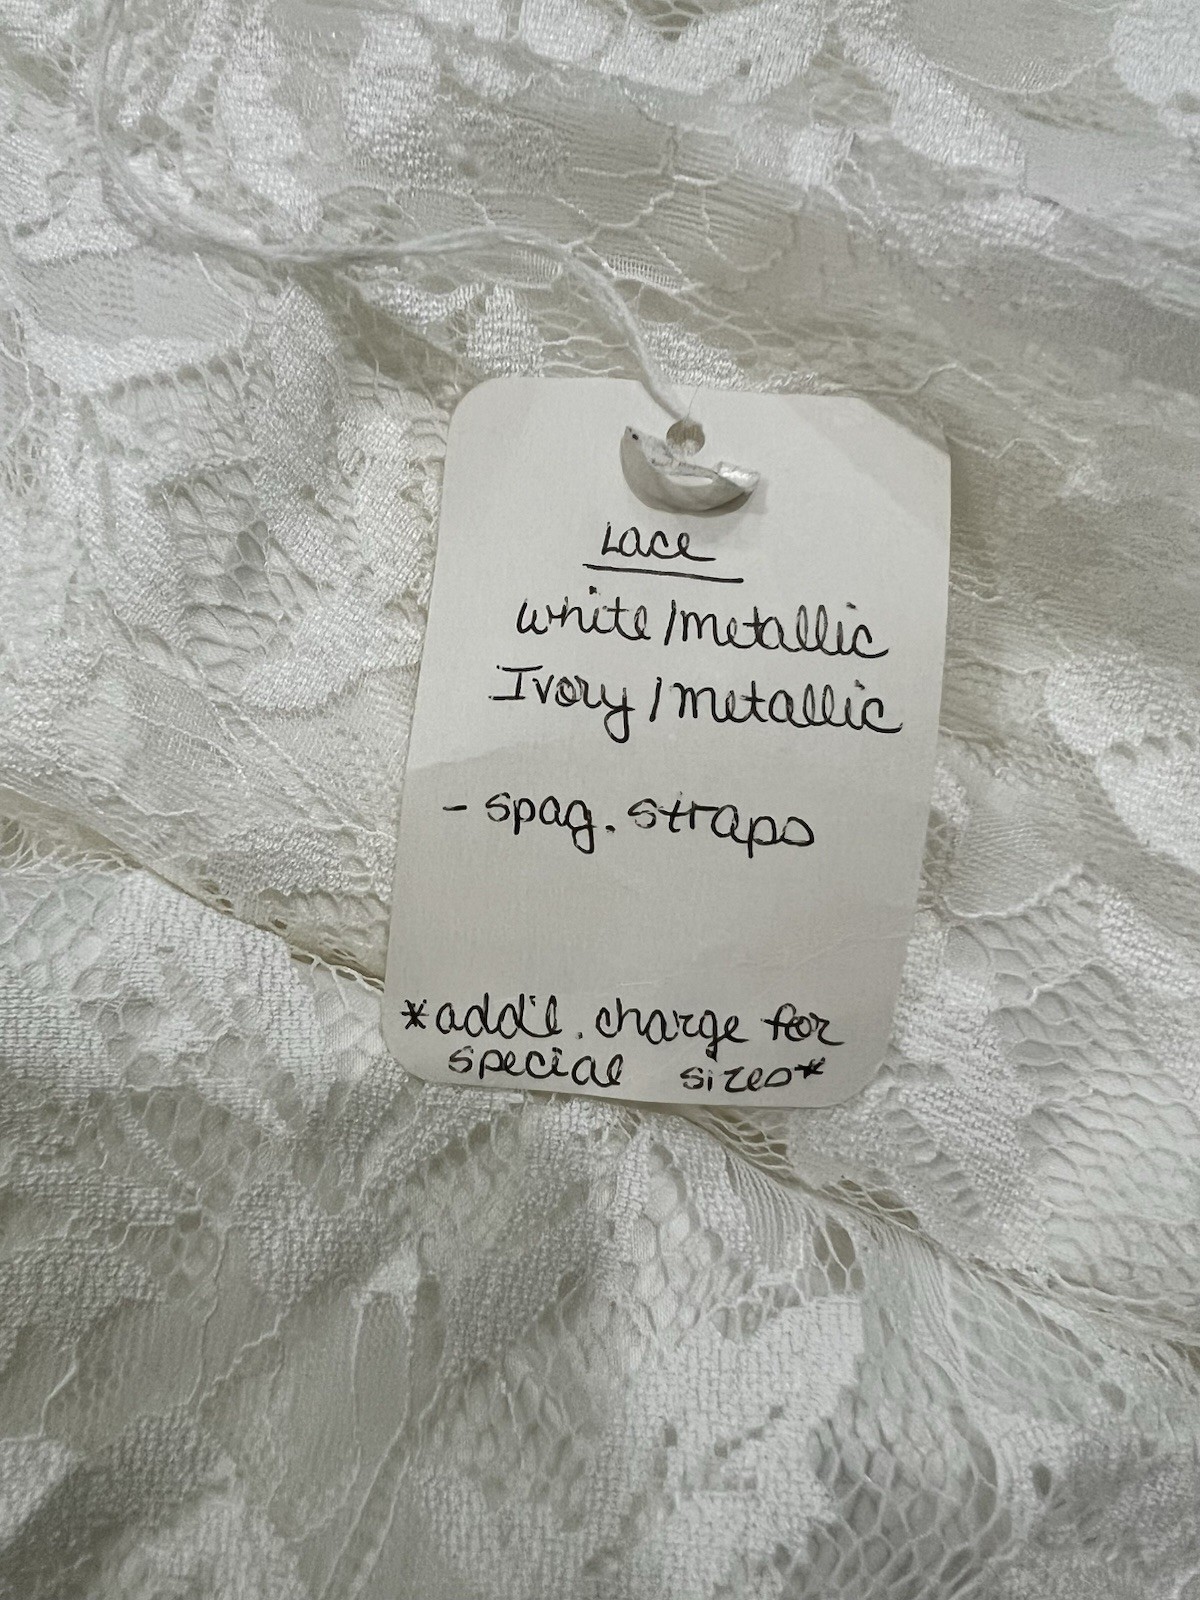 Lace
white/metallic
Ivory/metallic
- spag. straps
*add'l. charge for
special sizes*